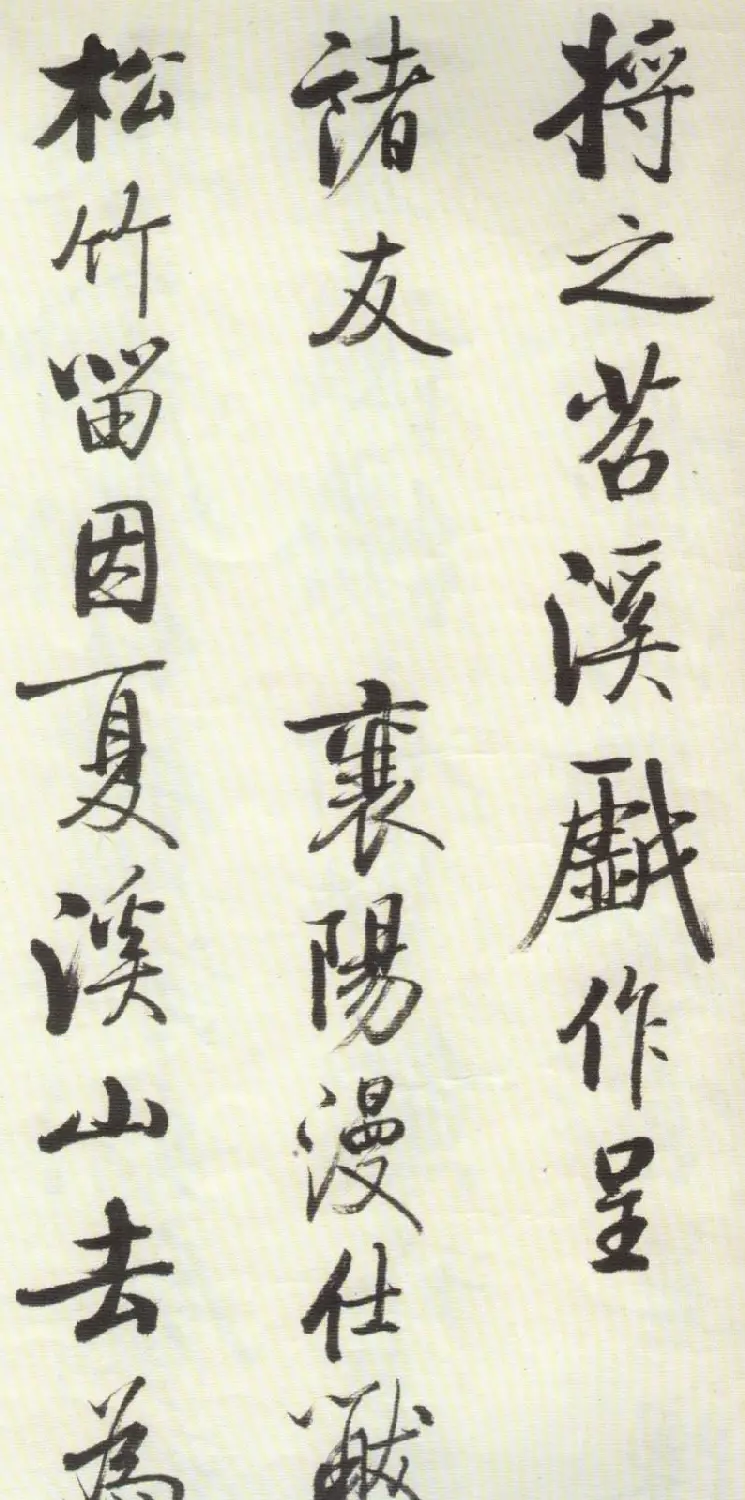 将之苕溪戲作呈
諸友 襄陽漫仕黻
松竹留因夏溪山去為